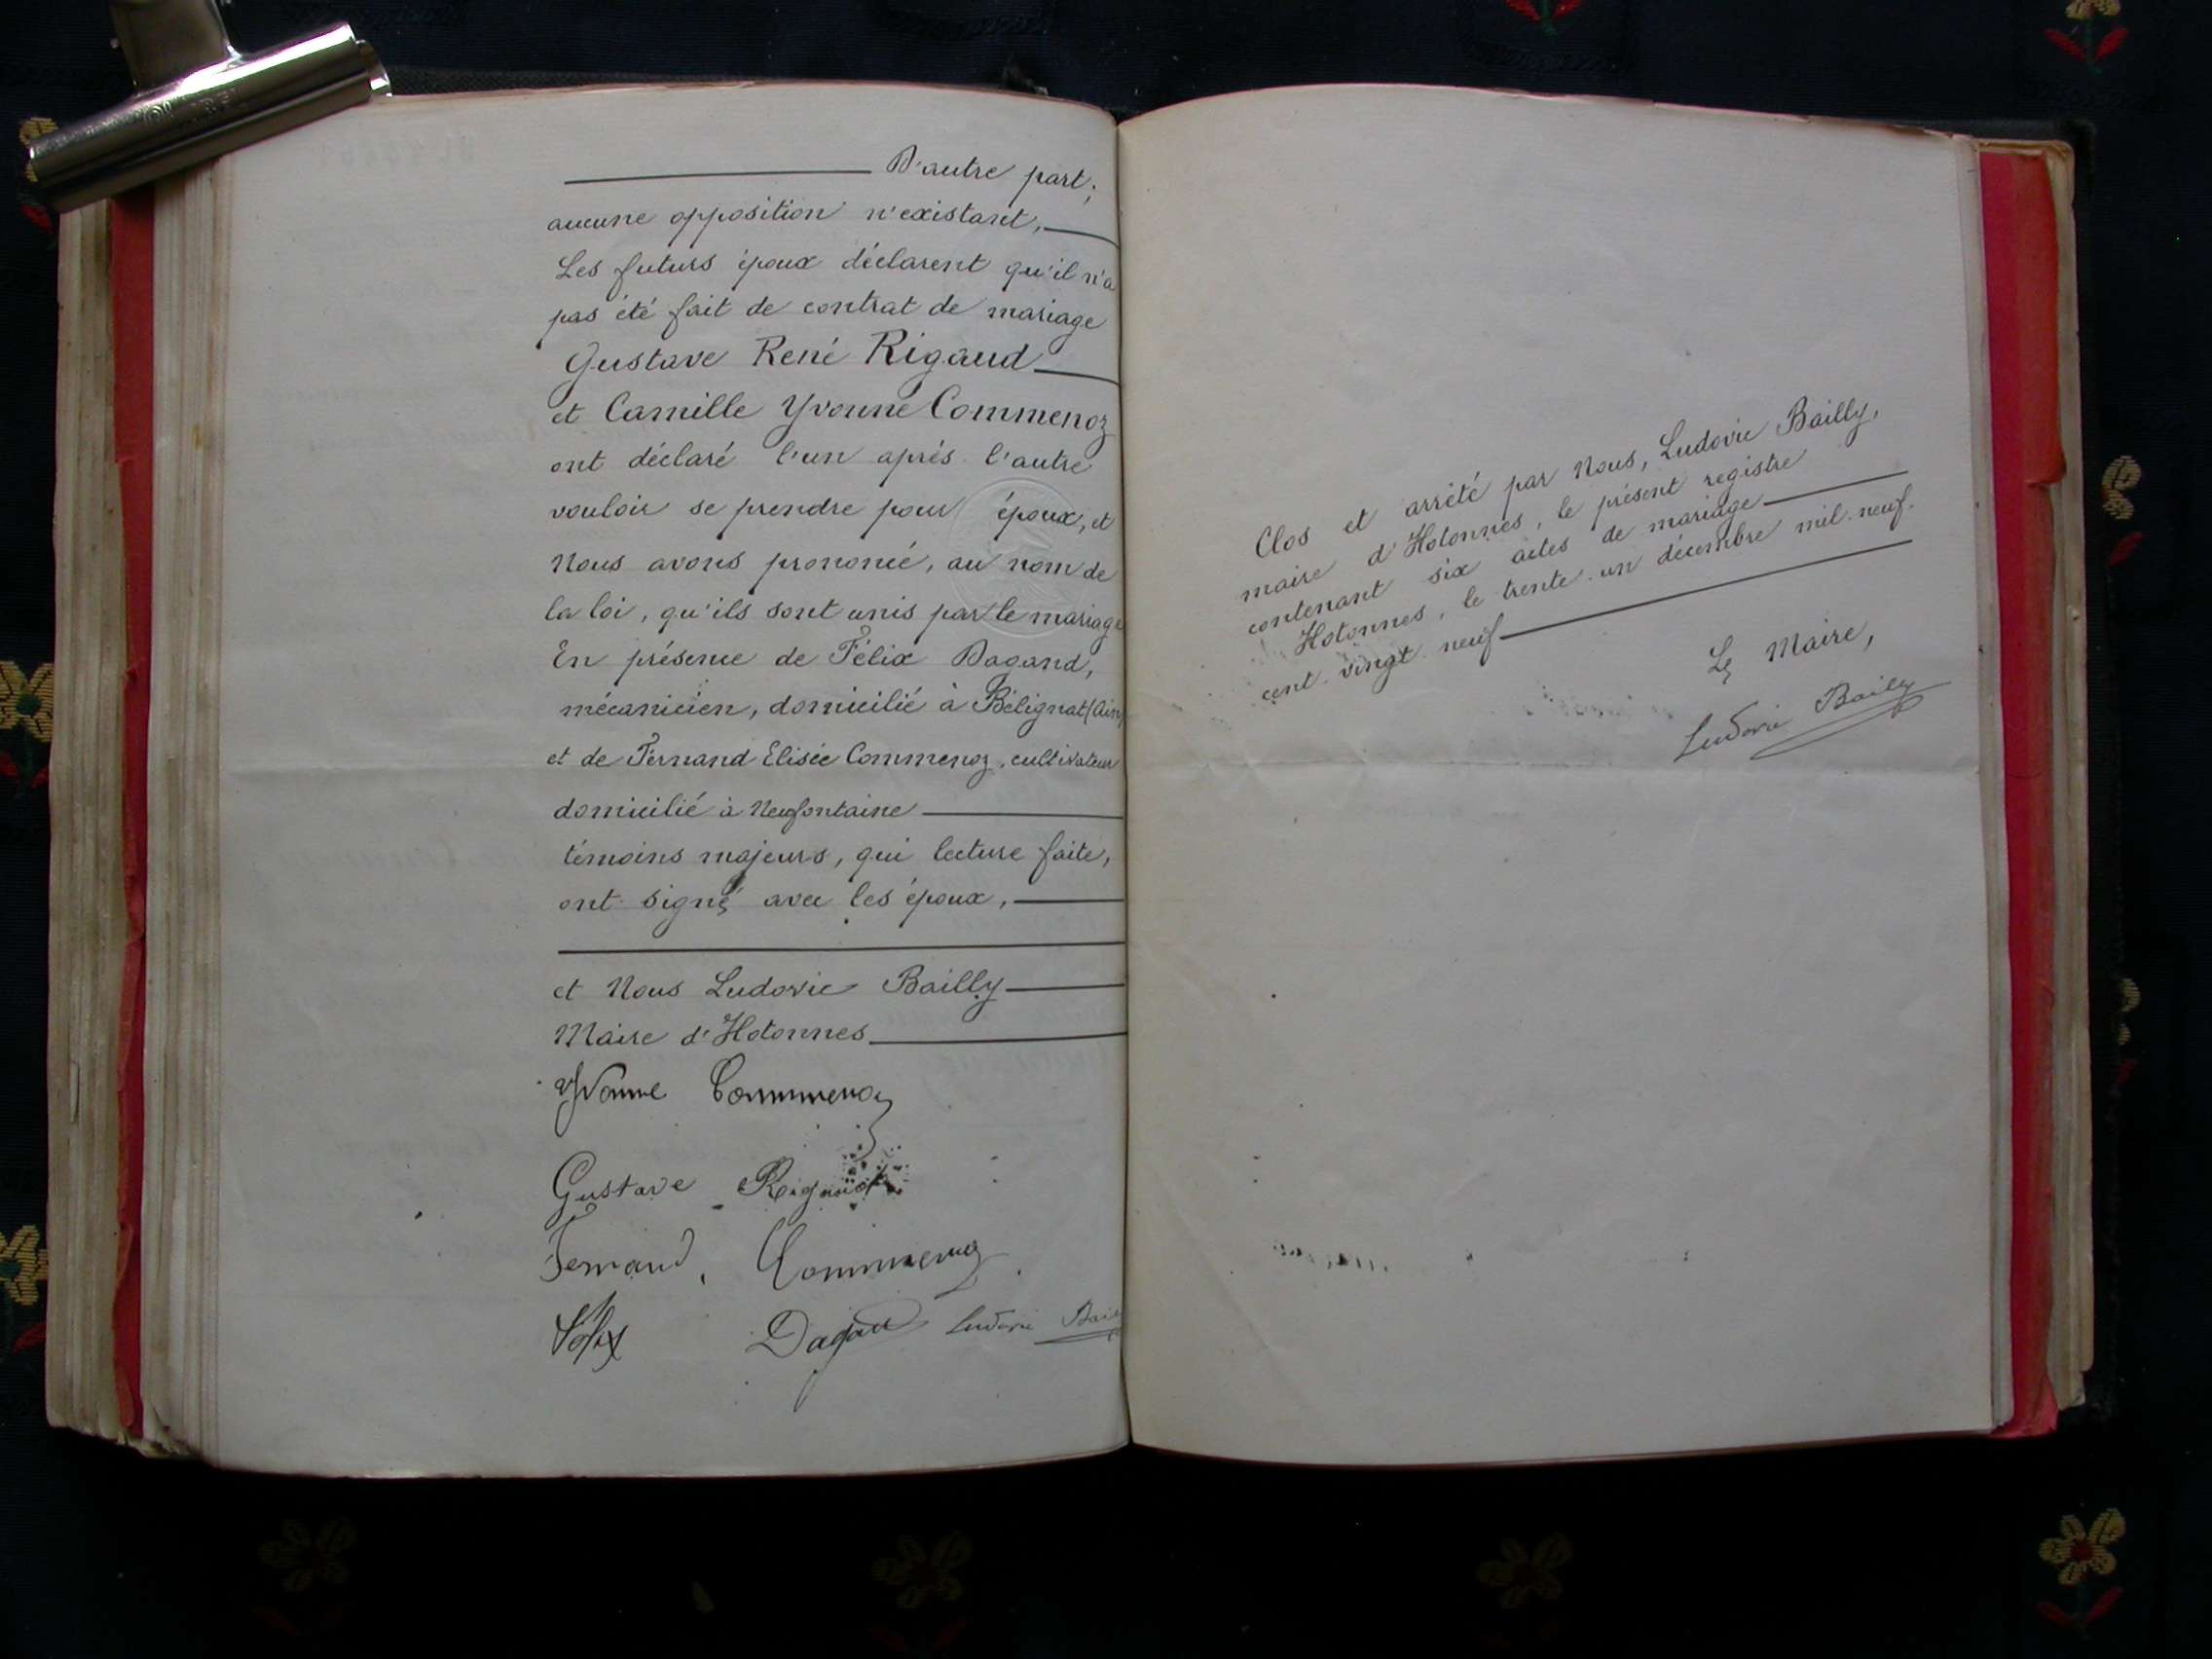 D'autre part;
aucune opposition n'existant,
Les futurs époux déclarent qu'il n'a
pas été fait de contrat de mariage
Gustave René Rigaud
et Camille Yvonne Commenoz
ont déclaré l'un après l'autre
vouloir se prendre pour époux, et
Nous avons prononcé, au nom de
la loi, qu'ils sont unis par le mariage
En présence de Félix Dagand,
mécanicien, domicilié à Bélignat (Ain)
et de Fernand Elisée Commenoz, cultivateur
domicilié à Neufontaine
témoins majeurs, qui lecture faite,
ont signé avec les époux,
et Nous Ludovic Bailly
Maire d'Hotonnes
Yvonne Commenoz
Gustave
Fernand, Commenoz
Félix Dagand Ludovic Bailly
Clos et arrêté par Nous, Ludovic Bailly,
maire d'Hotonnes, le présent registre
contenant six actes de mariage
Hotonnes, le trente-un décembre mil-neuf-
cent-vingt neuf
Le Maire,
Ludovic Bailly